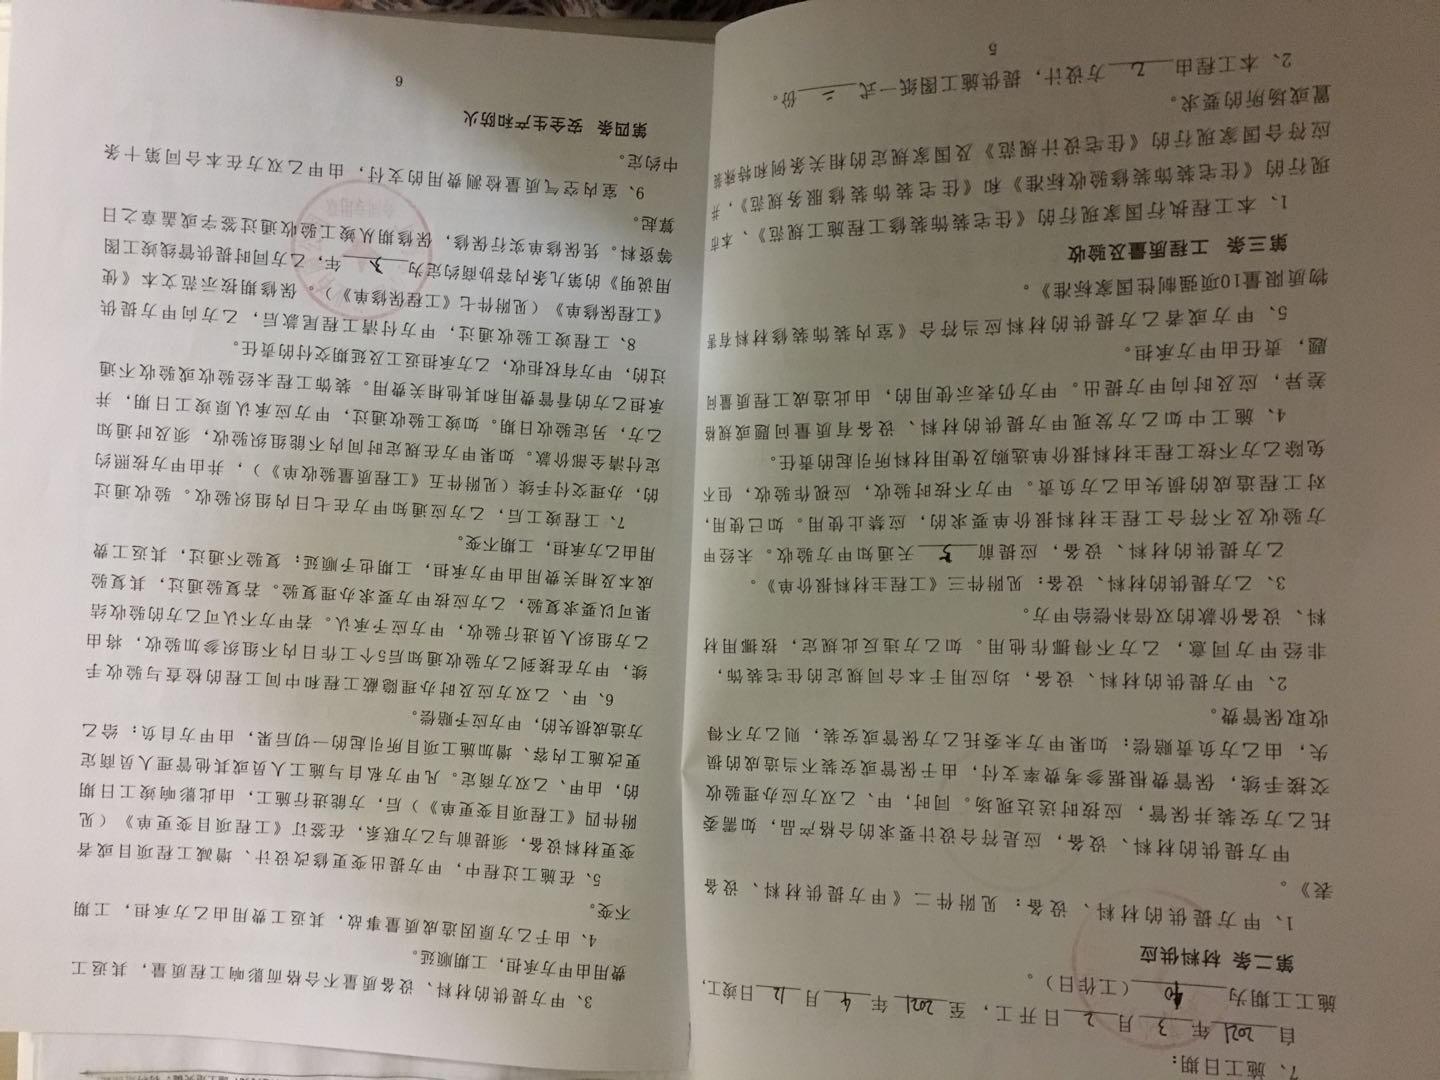 7、施工日期：
自2021年3月2日开工，至2021年4月12日竣工，
施工工期为40（工作日）。
第二条 材料供应
1、甲方提供的材料、设备：见附件二《甲方提供材料、设备
表》。
甲方提供的材料、设备，应是符合设计要求的合格产品，如需委
托乙方安装并保管，应按时送达现场。同时，甲、乙双方应办理验收
交接手续，保管费根据参考费率支付，由于保管或安装不当造成的损
失，由乙方负责赔偿；如果甲方未委托乙方保管或安装，则乙方不得
收取保管费。
2、甲方提供的材料、设备，均应用于本合同规定的住宅装饰，
非经甲方同意，乙方不得挪作他用。如乙方违反此规定，按挪用材
料、设备价款的双倍补偿给甲方。
3、乙方提供的材料、设备：见附件三《工程主材料报价单》。
乙方提供的材料、设备，应提前3天通知甲方验收。未经甲
方验收及不符合工程主材料报价单要求的，应禁止使用。如已使用，
对工程造成的损失由乙方负责。甲方不按时验收，应视作验收，但不
免除乙方不按工程主材料报价单选购及使用材料所引起的责任。
4、施工中如乙方发现甲方提供的材料、设备有质量问题或规格
差异，应及时向甲方提出。甲方仍表示使用的，由此造成工程质量问
题，责任由甲方承担。
5、甲方或者乙方提供的材料应当符合《室内装饰装修材料有害
物质限量10项强制性国家标准》。
第三条 工程质量及验收
1、本工程执行国家现行的《住宅装饰装修工程施工规范》、本市
现行的《住宅装饰装修验收标准》和《住宅装饰装修服务规范》，并
应符合国家现行的《住宅设计规范》及国家规定的相关条例和特殊装
置或场所的要求。
2、本工程由乙方设计，提供施工图纸一式二份。
5
3、甲方提供的材料、设备质量不合格而影响工程质量，其返工
费用由甲方承担，工期顺延。
4、由于乙方原因造成质量事故，其返工费用由乙方承担，工期
不变。
5、在施工过程中，甲方提出变更修改设计、增减工程项目或者
变更材料设备，须提前与乙方联系，在签订《工程项目变更单》（见
附件四《工程项目变更单》）后，方能进行施工，由此影响竣工日期
的，由甲、乙双方商定。凡甲方私自与施工人员或其他管理人员商定
更改施工内容、增加施工项目所引起的一切后果，由甲方自负；给乙
方造成损失的，甲方应予赔偿。
6、甲、乙双方应及时办理隐蔽工程和中间工程的检查与验收手
续，甲方在接到乙方验收通知后5个工作日内不组织参加验收，将由
乙方组织人员进行验收，甲方应予承认。若甲方不认可乙方的验收结
果可以要求复验，乙方应按甲方要求办理复验。若复验通过，其复验
成本及相关费用由甲方承担，工期也予顺延；复验不通过，其返工费
用由乙方承担，工期不变。
7、工程竣工后，乙方应通知甲方在七日内组织验收。验收通过
的，办理交付手续（见附件五《工程质量验收单》），并由甲方按照约
定付清全部价款。如果甲方在规定时间内不能组织验收，须及时通知
乙方，另定验收日期。如竣工验收通过，甲方应承认原竣工日期，并
承担乙方的看管费用和其他相关费用。装饰工程未经验收或验收不通
过的，甲方有权拒收，乙方承担返工及延期交付的责任。
8、工程竣工验收通过，甲方付清工程尾款后，乙方向甲方提供
《工程保修单》（见附件七《工程保修单》）。保修期按示范文本《使
用说明》的第九条内容协商约定为3年，乙方同时提供管线竣工图
等资料。凭保修单实行保修，保修期从竣工验收通过签字或盖章之日
算起。
9、室内空气质量检测费用的支付，由甲乙双方在本合同第十条
中约定。
第四条 安全生产和防火
6